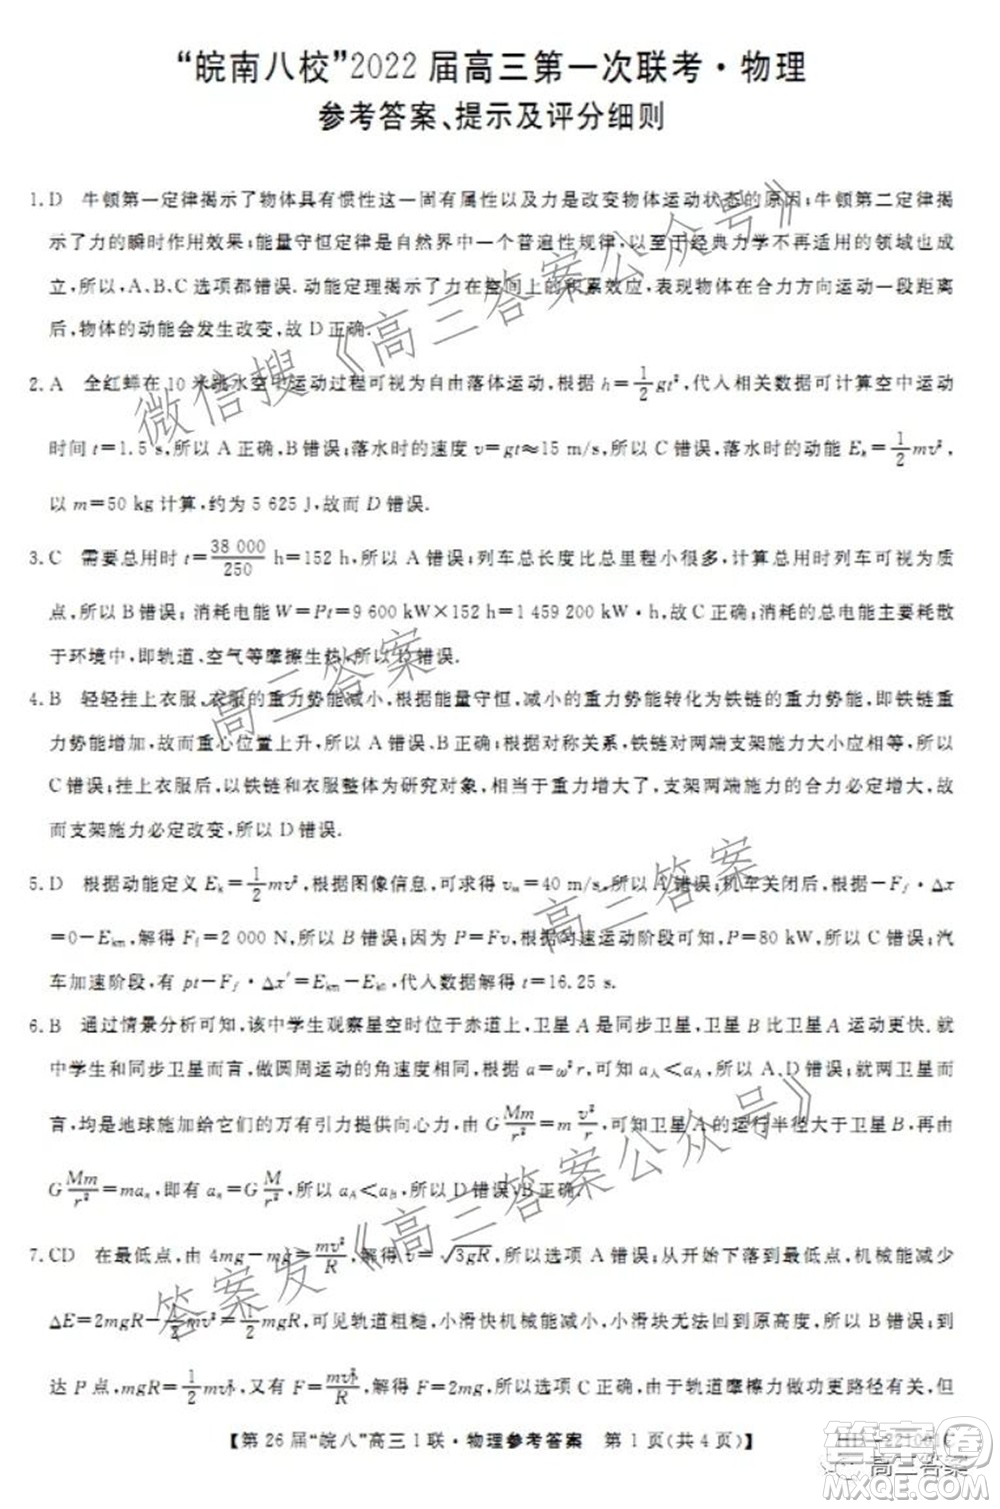 “皖南八校”2022届高三第一次联考·物理
参考答案、提示及评分细则
1. D 牛顿第一定律揭示了物体具有惯性这一固有属性以及力是改变物体运动状态的原因；牛顿第二定律揭
示了力的瞬时作用效果；能量守恒定律是自然界中一个普遍性规律，以至于经典力学不再适用的领域也成
立，所以，A、B、C选项都错误。动能定理揭示了力在空间上的积累效应，表现物体在合力方向运动一段距离
后，物体的动能会发生改变，故D正确.
2. A 全红蝉在10米跳水空中运动过程可视为自由落体运动，根据h=1/2gt²，代入相关数据可计算空中运动
时间t=1.5 s，所以A正确，B错误；落水时的速度v=gt≈15 m/s，所以C错误；落水时的动能Eₖ=1/2mv²，
以m=50 kg计算，约为5 625 J，故而D错误.
3. C 需要总用时t=38 000/250 h=152 h，所以A错误；列车总长度比总里程小很多，计算总用时列车可视为质
点，所以B错误；消耗电能W=Pt=9 600 kW×152 h=1 459 200 kW·h，故C正确；消耗的总电能主要耗散
于环境中，即轨道、空气等摩擦生热，所以D错误.
4. B 轻轻挂上衣服，衣服的重力势能减小，根据能量守恒，减小的重力势能转化为铁链的重力势能，即铁链重
力势能增加，故而重心位置上升，所以A错误、B正确；根据对称关系，铁链对两端支架施力大小应相等，所以
C错误；挂上衣服后，以铁链和衣服整体为研究对象，合重力增大，因而，支架两端施力的合力必定增大，故
而支架施力必定改变，所以D错误.
5. D 根据动能定义Eₖ=1/2mv²，根据图像信息，可求得vₘ=40 m/s，所以A错误；机车关闭后，根据-F_f·Δx
=0-Eₖₘ，解得F_f=2 000 N，所以B错误；因为P=Fv，根据匀速运动阶段可知P=80 kW，所以C错误；汽
车加速阶段，有pt-F_f·Δx′=Eₖₘ-Eₖ₀，代入数据解得t=16.25 s.
6. B 通过情景分析可知，该中学生观察星空时位于赤道上，卫星A是同步卫星，卫星B比卫星A运动更快. 就
中学生和同步卫星而言，做圆周运动的角速度相同，根据a=ω²r，可知a人<a_A，所以A、D错误；就两卫星而
言，均是地球施加给它们的万有引力提供向心力，由G Mm/r²=m v²/r，可知卫星A的运行半径大于卫星B，又由
G Mm/r²=maₙ，即有aₙ=G M/r²，所以a_A<a_B，所以D错误，B正确.
7. CD 在最低点，由4mg-mg=mv²/R，解得v=√3gR，所以选项A错误；从开始下落到最低点，机械能减少
ΔE=2mgR-1/2mv²=1/2mgR，可见轨道粗糙，小滑块机械能减小，小滑块无法回到原高度，所以B错误；到
达P点，mgR=1/2mv²，又有F=mv²/R，解得F=2mg，所以C正确；由于轨道摩擦力做功更路径有关，在
【第26届“皖八”高三1联·物理参考答案 第1页(共4页)】
微信搜《高三答案公众号》
高三答案
高三答案
答案发《高三答案公众号》
高三答案